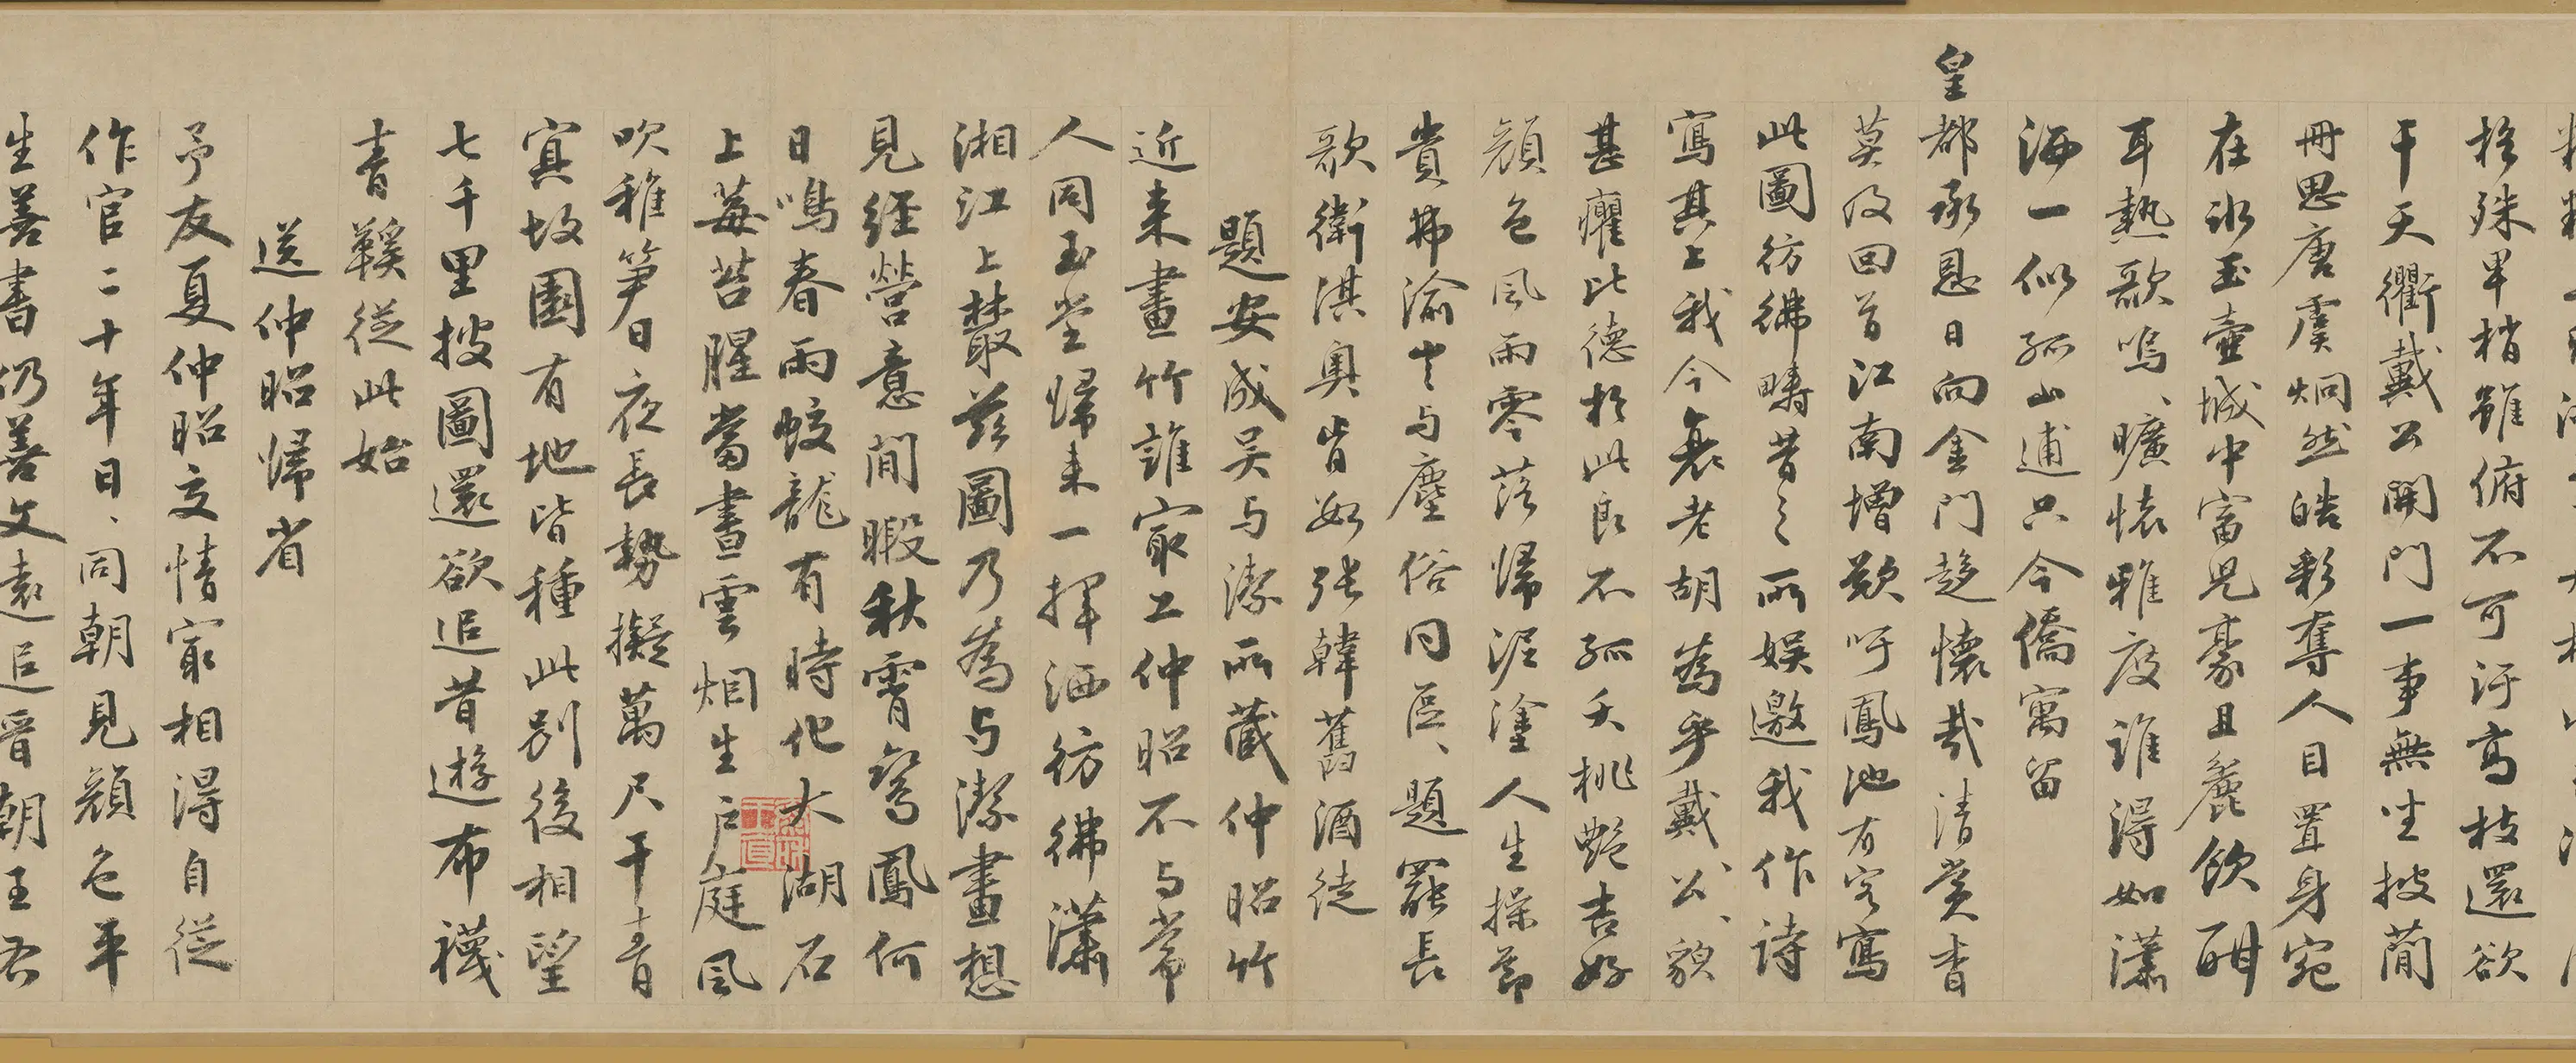 於殊畢梢雖俯不可汙高枝還欲
干天衢戴公開門一事無坐披蕳
冊思唐虞炯然皓彩奪人目置身宛
在冰玉壺城中富兒豪且麗飲酣
耳熱歌嗚、曠懷雅度誰得如瀟
洒一似孤山逋只今僑寓留
皇都承恩日向金門趨懷哉清賞青
莫及回首江南增歎吁鳳池有客寫
此圖彷彿疇昔之所娛邀我作詩
寫其上我今衰老胡為乎戴公、貌
甚癯比德於此良不孤夭桃艷杏好
顏色風雨零落歸泥塗人生操節
貴弗渝莫与塵俗同區、題罷長
歌衛淇奧肯如張韓舊酒徒
題安成吴与潔所藏仲昭竹
近来畫竹誰家工仲昭不与常
人同玉堂歸来一揮洒彷彿瀟
湘江上叢茲圖乃為与潔畫想
見經營意閒暇秋霄鸞鳳何
日鳴春雨蛟龍有時化太湖石
上莓苔腥當晝雲烟生户庭風
吹稚笋日夜長勢擬萬尺干青
冥故園有地皆種此別後相望
七千里披圖還欲追昔遊布襪
青鞵從此始
送仲昭歸省
予友夏仲昭交情最相得自從
作官二十年日、同朝見顏色平
生善書仍善文遠追晉朝王右